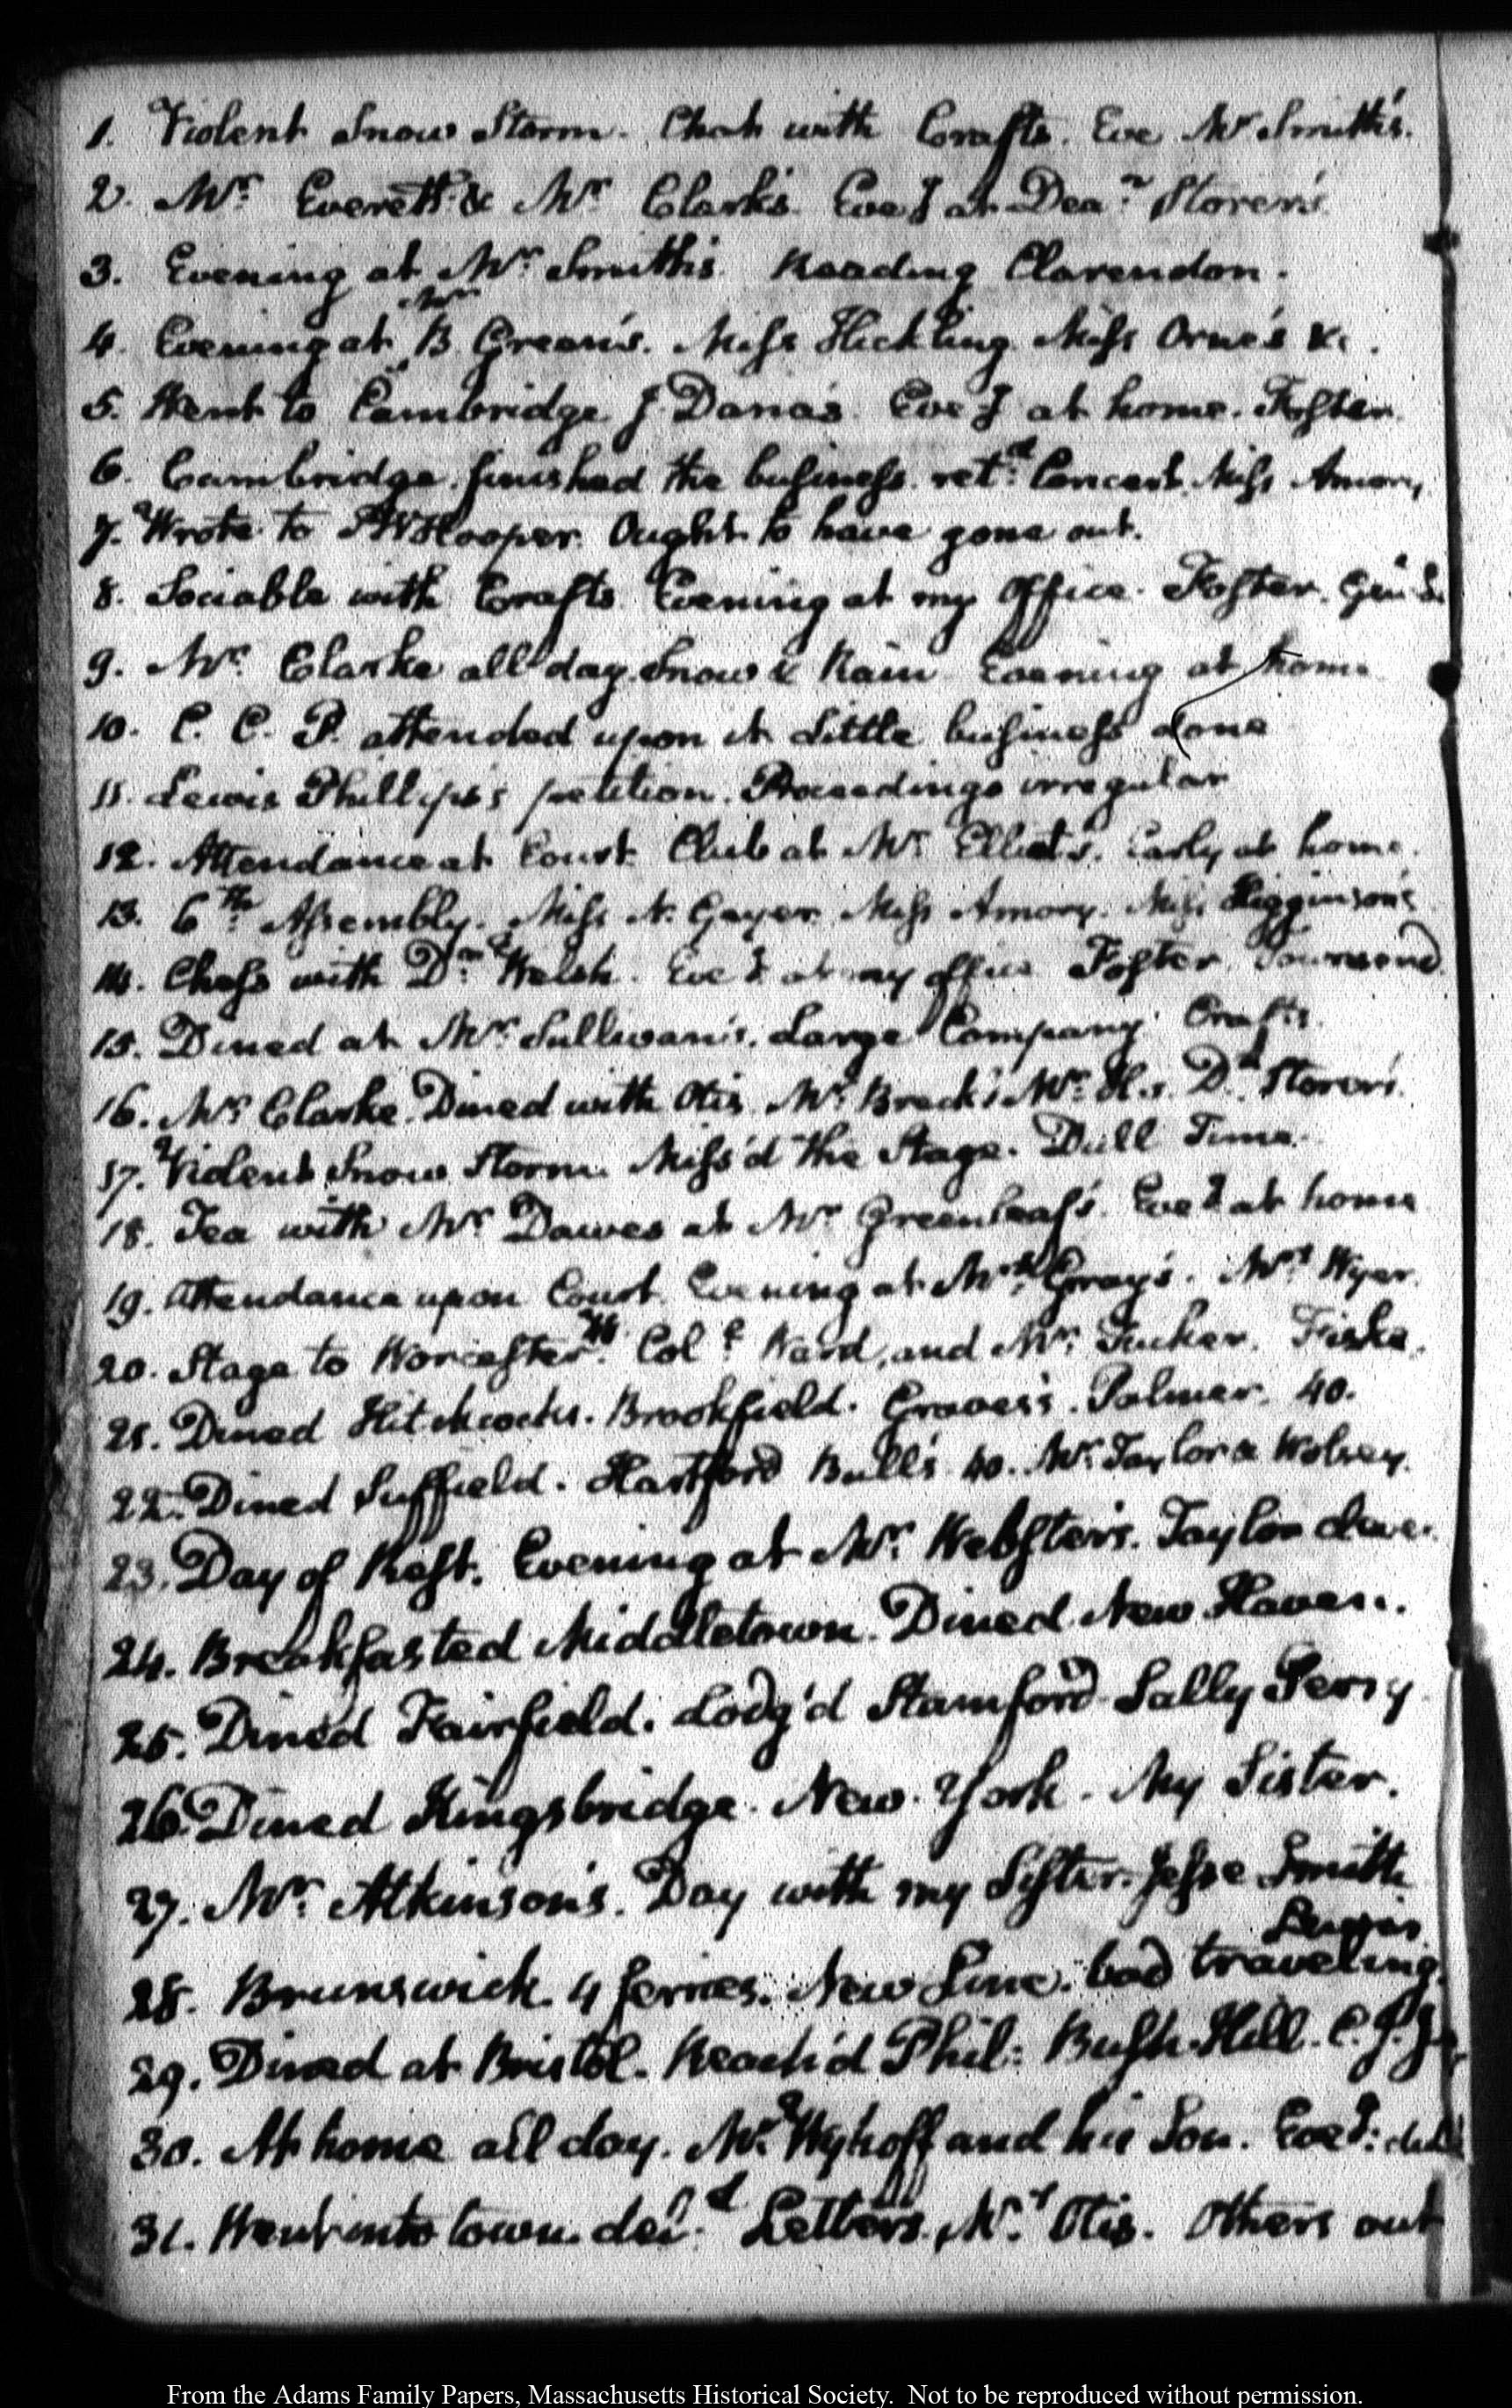 1. Violent Snow Storm. Chat with Crafts. Eve Mr Smith's.
2. Mr Everett & Mr Clarke's. Eveg at Dean Storer's
3. Evening at Mr Smith's. Reading Clarendon.
Mr
4. Evening at B Green's. Miss Hickling. Miss Orne's &c.
5. Went to Cambridge. J Dana's. Eveg at home. Foster.
6. Cambridge. finished the business. retd Concert. Miss Amory
7. Wrote to Hooper. Ought to have gone out.
8. Sociable with Crafts. Evening at my Office. Foster.
9. Mr Clarke all day. Snow & Rain. Evening at home
10. C. C. P. attended upon it. Little business done
11. Lewis Phillips's petition. Proceedings irregular
12. Attendance at Court. Club at Mr Elliot's. Early at home.
13. 6th Assembly. Miss N. Gayer. Miss Amory. Miss Higginson's
14. Chess with Dr Welsh. Eveg at my office Foster. Townsend
15. Dined at Mr Sullivan's. Large Company. Crafts.
16. Mr Clarke. Dined with Otis. Mr Breck's. Mr H.s. Dn Storer's.
17. Violent Snow Storm. Miss'd the Stage. Dull Time.
18. Tea with Mr Dawes at Mr Greenleaf's. Eveg at home
19. Attendance upon Court. Evening at Mrs Gray's. Mrs Wyer.
20. Stage to Worcester. Col: Ward, and Mr Tucker. Fiske.
21. Dined Hitchcock's. Brookfield. Graves's. Palmer. 40.
22. Dined Suffield. Hartford Bull's 40. Mr Taylor & Wolsey.
23. Day of Rest. Evening at Mr Webster's. Taylor
24. Breakfasted Middletown. Dined New Haven.
25. Dined Fairfield. Lodg'd Stamford. Sally Perry
26. Dined Kingsbridge. New York. My Sister.
27. Mr Atkinson's. Day with my Sister. Jesse Smith
28. Brunswick. 4 ferries. New Line. bad traveling.
29. Dined at Bristol. Reach'd Phil: Bush-Hill.
30. At home all day. Mr Wykoff and his Son. Eveg: dull
31. Went into town. deld Letters. Mr Otis. Others out
From the Adams Family Papers, Massachusetts Historical Society. Not to be reproduced without permission.